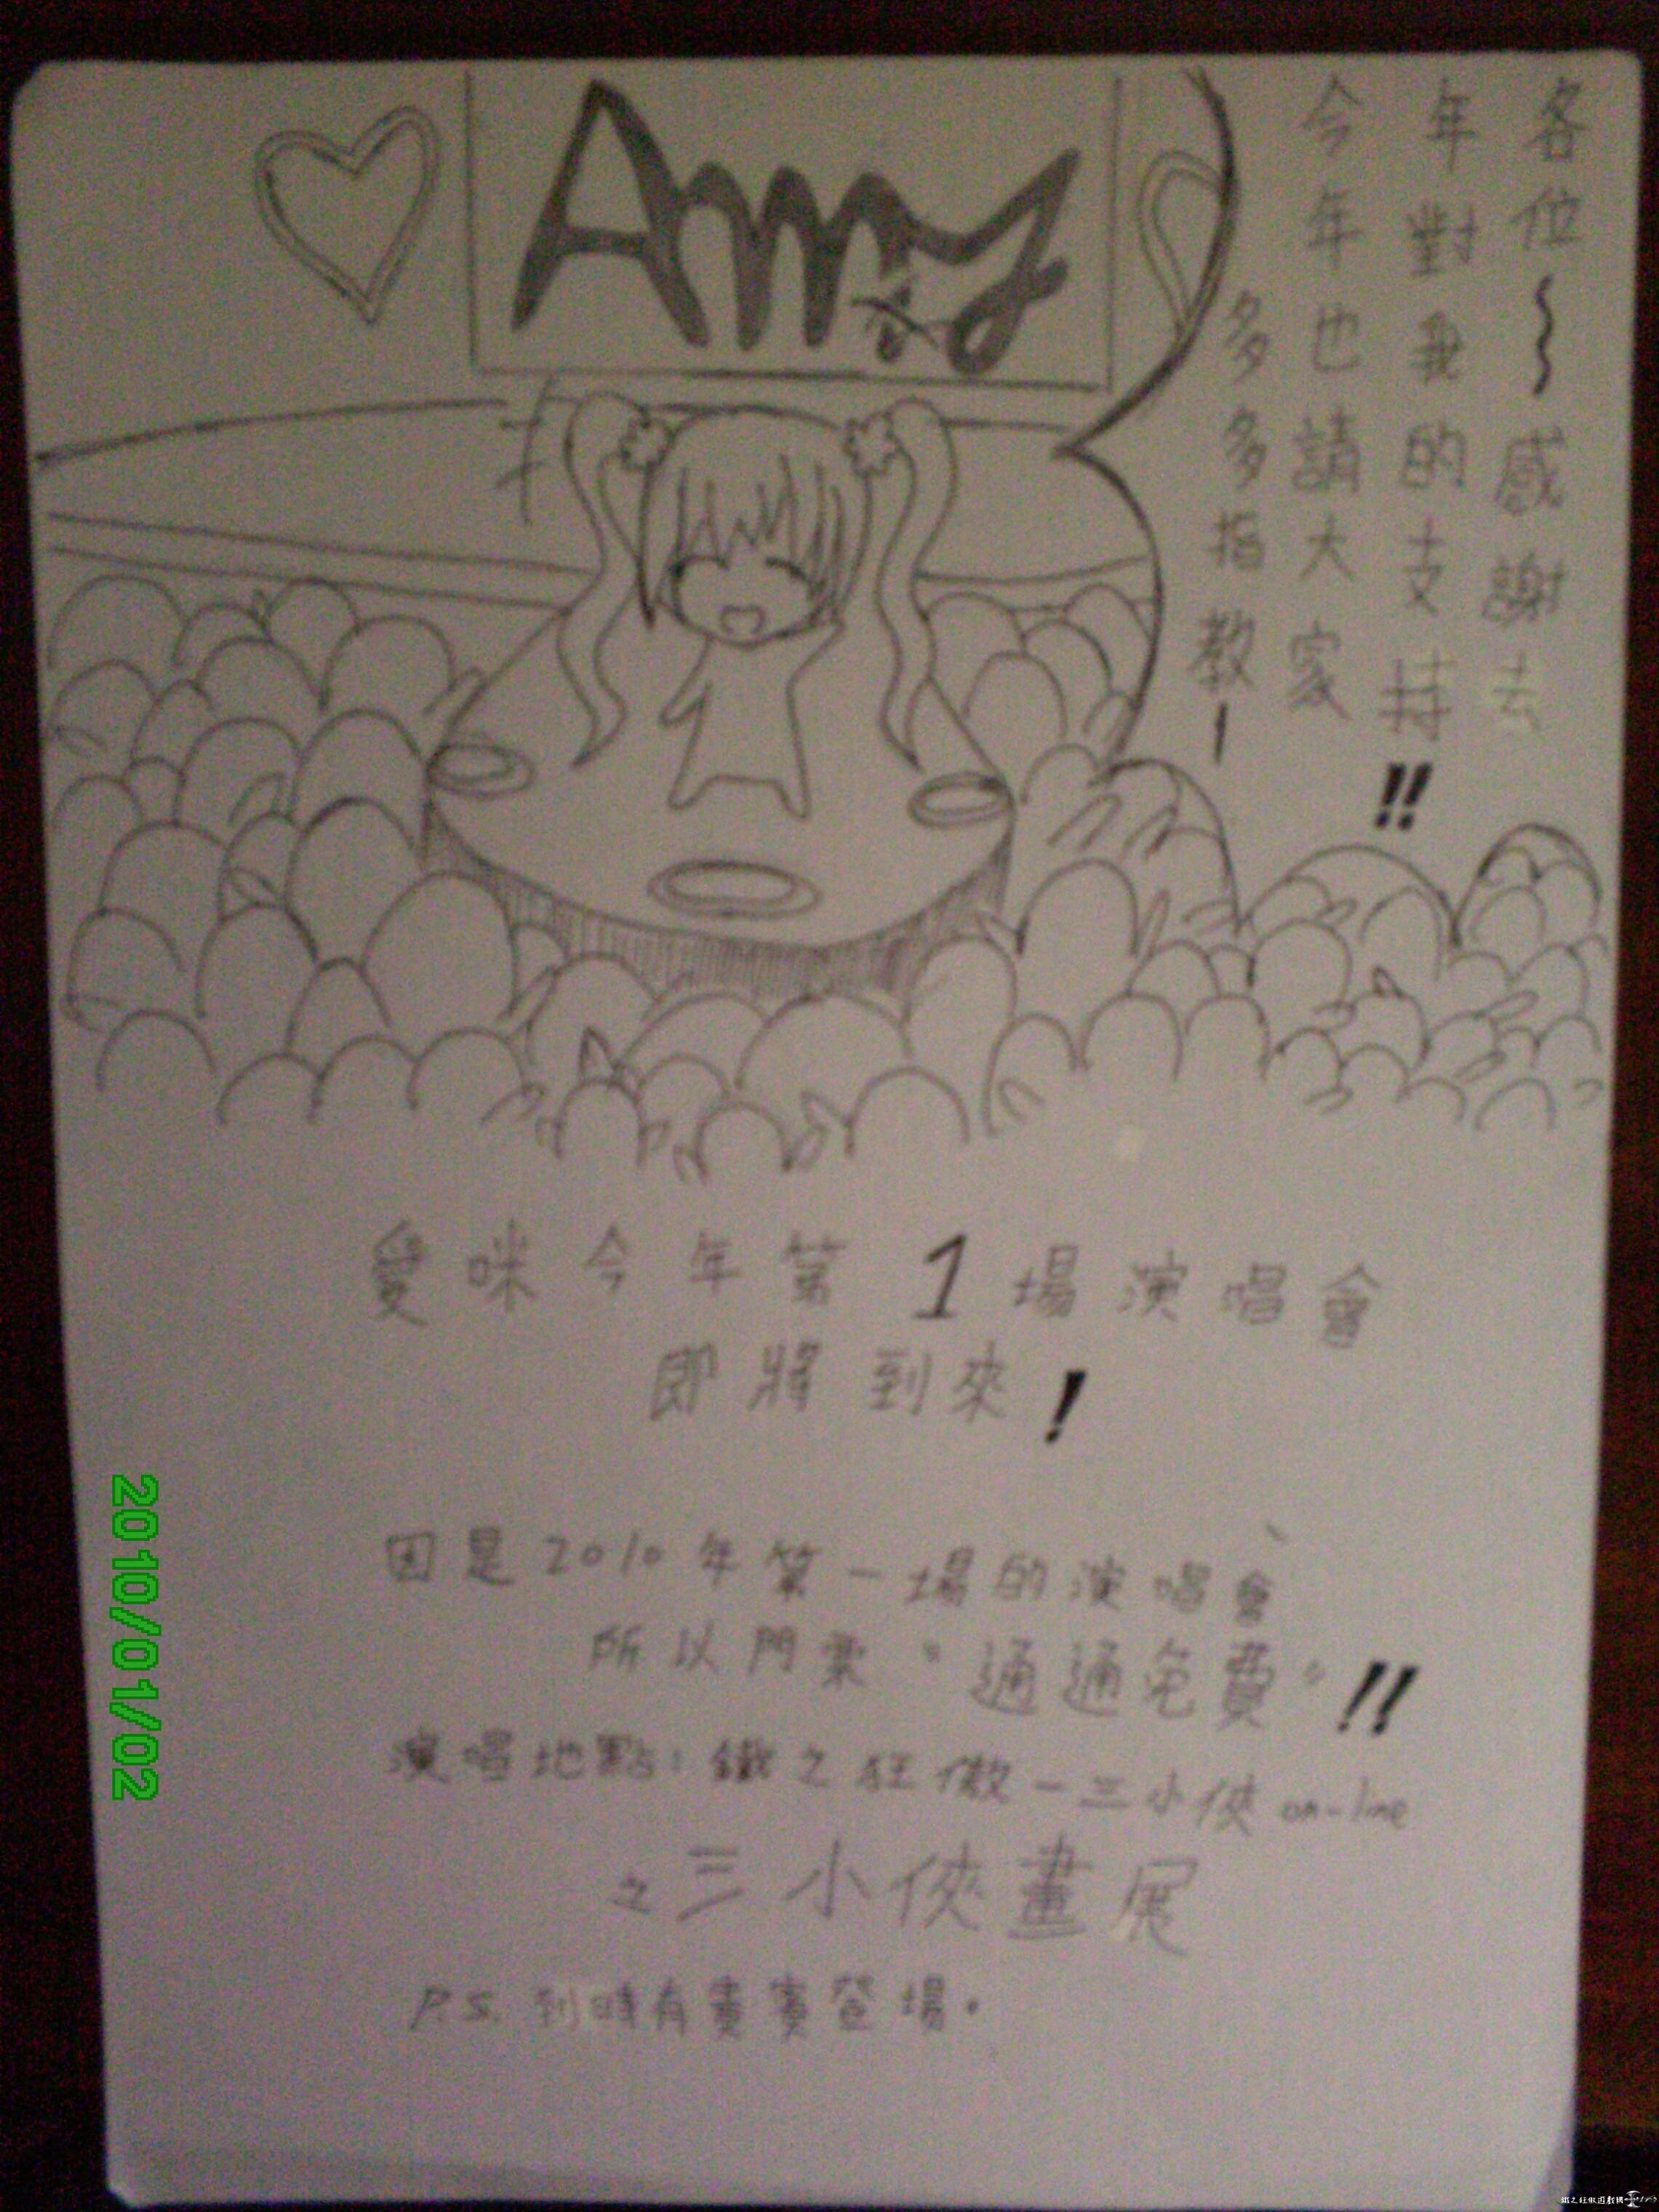 Amy
各位~感謝去
年對我的支持!!
今年也請大家
多多指教-
愛咪今年第1場演唱會
即將到來!
因是2010年第一場的演唱會、
所以門票“通通免費”!!
演唱地點:鐵之狂傲-三小俠 on-line
之三小俠畫展
P.S. 到時有貴賓登場.
2010/01/02